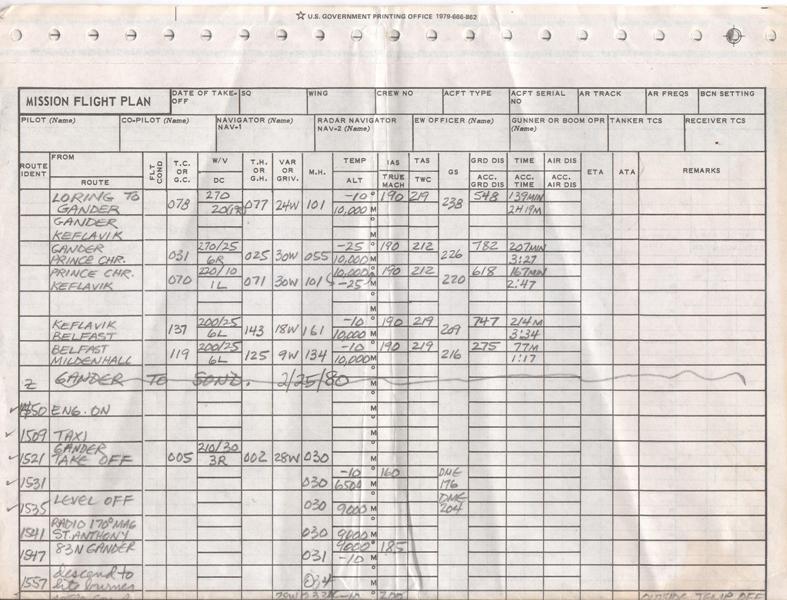 ☆ U.S. GOVERNMENT PRINTING OFFICE 1979-666-862
MISSION FLIGHT PLAN DATE OF TAKE-OFF SQ WING CREW NO ACFT TYPE ACFT SERIAL NO AR TRACK AR FREQS BCN SETTING
PILOT (Name) CO-PILOT (Name) NAVIGATOR (Name) NAV-1 RADAR NAVIGATOR (Name) NAV-2 EW OFFICER (Name) GUNNER OR BOOM OPR (Name) TANKER TCS RECEIVER TCS
ROUTE IDENT FROM FLT COND T.C. OR G.C. W/V T.H. OR G.H. VAR OR GRIV. M.H. TEMP IAS TAS GS GRD DIS TIME AIR DIS ETA ATA REMARKS
ROUTE DC ALT TRUE MACH TWC ACC. GRD DIS ACC. TIME ACC. AIR DIS
LORING TO 078 270 077 24W 101 -10° 190 219 238 548 139MIN
GANDER 10,000 M 2H 19M
GANDER
KEFLAVIK
GANDER 031 270/25 025 30W 055 -25° 190 212 226 782 207MIN
PRINCE CHR. 6R 10,000 M 3:27
PRINCE CHR. 070 220/10 071 30W 101 10,000 190 212 220 618 167MIN
KEFLAVIK 1L -25 M 2:47
KEFLAVIK 137 200/25 143 18W 161 -10° 190 219 209 747 214M
BELFAST 6L 10,000 M 3:34
BELFAST 119 200/25 125 9W 134 -10° 190 219 216 275 77M
MILDENHALL 6L 10,000 M 1:17
Z GANDER TO SOND. 2/25/80
ENG. ON
1509 TAXI
1521 GANDER TAKE OFF 005 210/30 3R 002 28W 030
1531 030 -10° 6500 M 160 DME 176
1535 LEVEL OFF 030 9000 M DME 204
1541 RADIO 170° MAG ST. ANTHONY 030 9000 M
1547 83N GANDER 031 9000 -10 M 185
1557 descend to 034 M